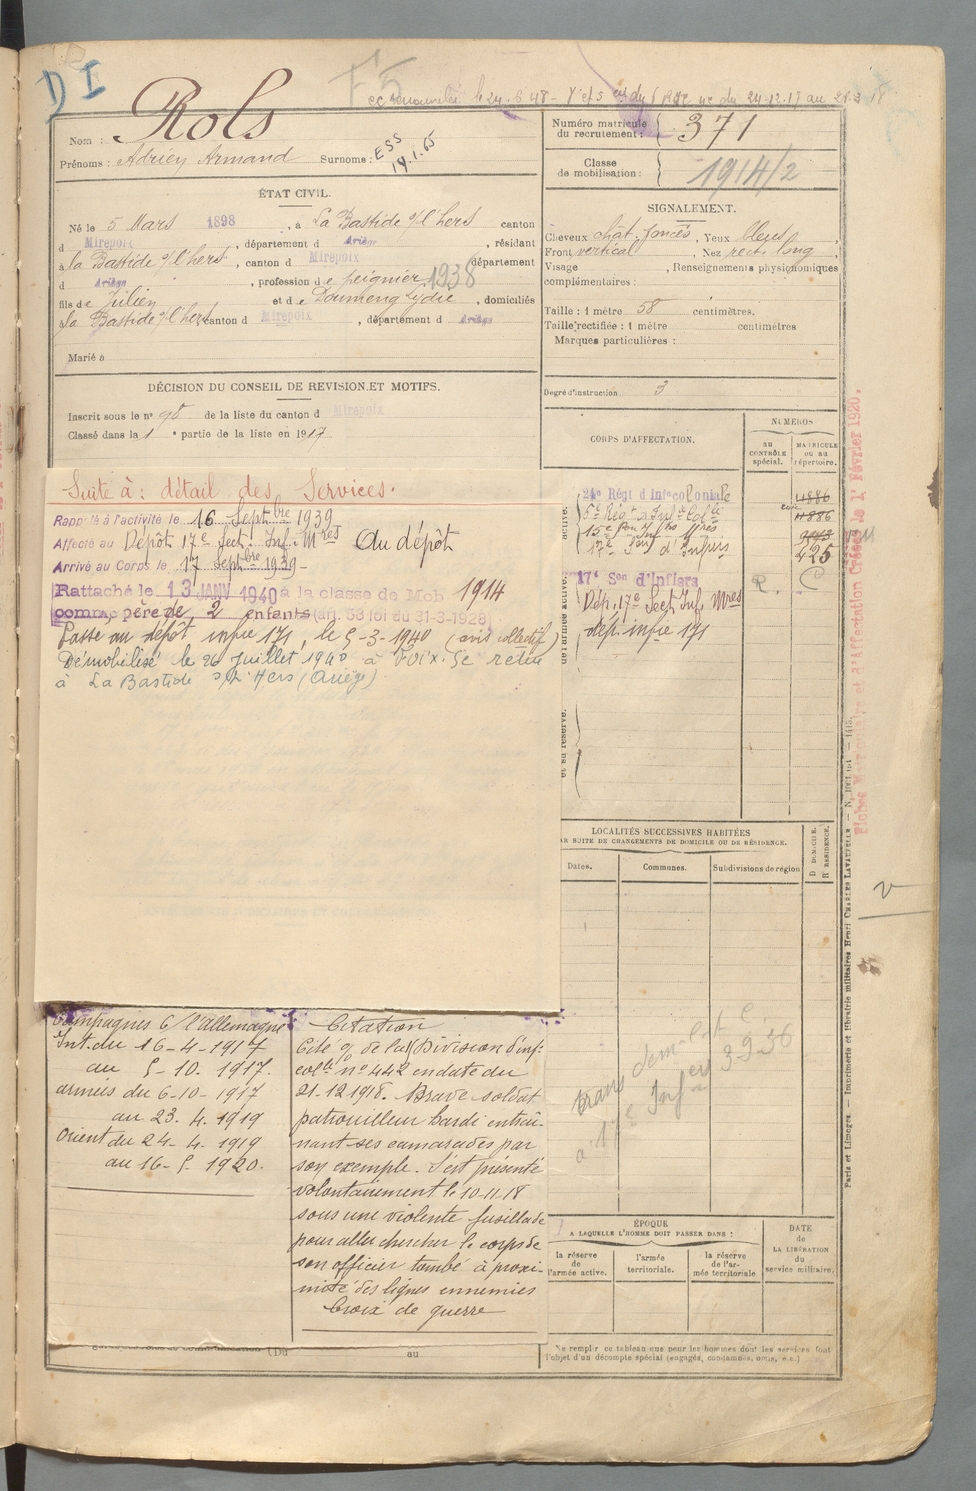 D I
F 5
cc renouvelée le 24.8.48 - du 24.12.17 au
Rols
Nom :
Prénoms : Adrien Armand Surnoms : ESS
14.1.65
Numéro matricule
du recrutement : 371
Classe
de mobilisation : 1914/2
ÉTAT CIVIL.
Né le 5 Mars 1898, à La Bastide s/l'hers canton
d Mirepoix, département d Ariège, résidant
à la Bastide s/l'hers, canton d Mirepoix département
d Ariège, profession de peignier 1938
fils de Julien et de Doumeng Lydie, domiciliés
la Bastide s/l'hers canton d Mirepoix, département d Ariège
Marié à
SIGNALEMENT.
Cheveux chat. foncés, Yeux bleus,
Front vertical, Nez rect. long,
Visage , Renseignements physionomiques
complémentaires :
Taille : 1 mètre 58 centimètres.
Taille rectifiée : 1 mètre centimètres
Marques particulières :
Degré d'instruction 3
DÉCISION DU CONSEIL DE REVISION ET MOTIFS.
Inscrit sous le n° 98 de la liste du canton d Mirepoix
Classé dans la 1e partie de la liste en 1917
Suite à : détail des Services.
Rappelé à l'activité le 16 Septbre 1939
Affecté au Dépôt 17e Sect. Inf. Mres Au dépôt
Arrivé au Corps le 17 Septbre 1939 -
Rattaché le 13 JANV 1940 à la classe de Mob 1914
comme père de 2 enfants (art. 58 loi du 31-3-1928)
Passe au dépôt infie 171, le 5-3-1940 (avis collectif)
Démobilisé le 26 Juillet 1940 à Foix. Se retire
à La Bastide s/L'Hers (Ariège)
CORPS D'AFFECTATION.
NUMÉROS
AU
CONTRÔLE
spécial.
MATRICULE
ou au
répertoire.
24e Régt d'Inf Coloniale 4886
5e Régt d'Infie Colle 4886
17e Son d'Infirs 425
17e Son d'Infiers R. C
Dép. 17e Sect Inf. Mres
dép. infie 171
LOCALITÉS SUCCESSIVES HABITÉES
PAR SUITE DE CHANGEMENTS DE DOMICILE OU DE RÉSIDENCE.
Dates.
Communes.
Subdivisions de région
D DOMICILE.
R RÉSIDENCE.
3-9-36
Campagnes C/ l'Allemagne
Int. du 16-4-1917
au 5-10-1917.
armées du 6-10-1917
au 23.4.1919
Orient du 24-4.1919
au 16-5-1920.
Citation
Cité % de la Division d'inf.
colle n° 442 en date du
21.12.1918. Brave soldat
patrouilleur hardi entraî-
nant ses camarades par
son exemple. S'est présenté
volontairement le 10-11-18
sous une violente fusillade
pour aller chercher le corps de
son officier tombé à proxi-
mité des lignes ennemies
Croix de guerre
ÉPOQUE
A LAQUELLE L'HOMME DOIT PASSER DANS :
la réserve
de
l'armée active.
l'armée
territoriale.
la réserve
de l'ar-
mée territoriale
DATE
de
LA LIBÉRATION
du
service militaire.
(Du au
Ne remplir ce tableau que pour les hommes dont les services font
l'objet d'un décompte spécial (engagés, condamnés, omis, e.c.)
Fiches Matriculaire et d'Affectation Créées le 1er Février 1920.
Paris et Limoges. — Imprimerie et librairie militaires Henri CHARLES-LAVAUZELLE